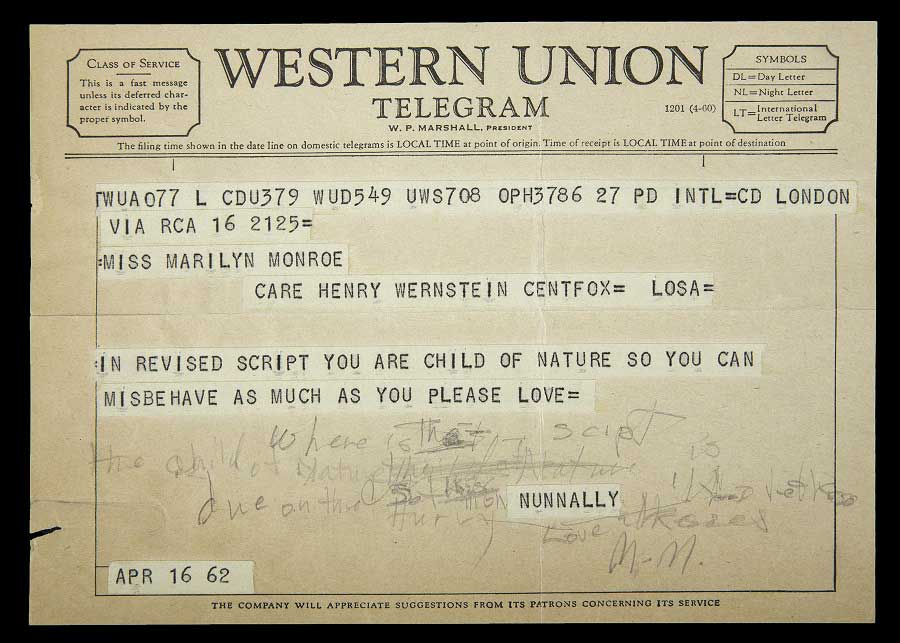 WESTERN UNION
TELEGRAM
W. P. MARSHALL, PRESIDENT
1201 (4-60)
CLASS OF SERVICE
This is a fast message
unless its deferred char-
acter is indicated by the
proper symbol.
SYMBOLS
DL=Day Letter
NL=Night Letter
LT=International
Letter Telegram
The filing time shown in the date line on domestic telegrams is LOCAL TIME at point of origin. Time of receipt is LOCAL TIME at point of destination
WUA077 L CDU379 WUD549 UWS708 OPH3786 27 PD INTL=CD LONDON
VIA RCA 16 2125=
:MISS MARILYN MONROE
CARE HENRY WERNSTEIN CENTFOX= LOSA=
:IN REVISED SCRIPT YOU ARE CHILD OF NATURE SO YOU CAN
MISBEHAVE AS MUCH AS YOU PLEASE LOVE=
Where is That script
the child of Nature is
due on the
NUNNALLY
Love
M.M.
APR 16 62
THE COMPANY WILL APPRECIATE SUGGESTIONS FROM ITS PATRONS CONCERNING ITS SERVICE